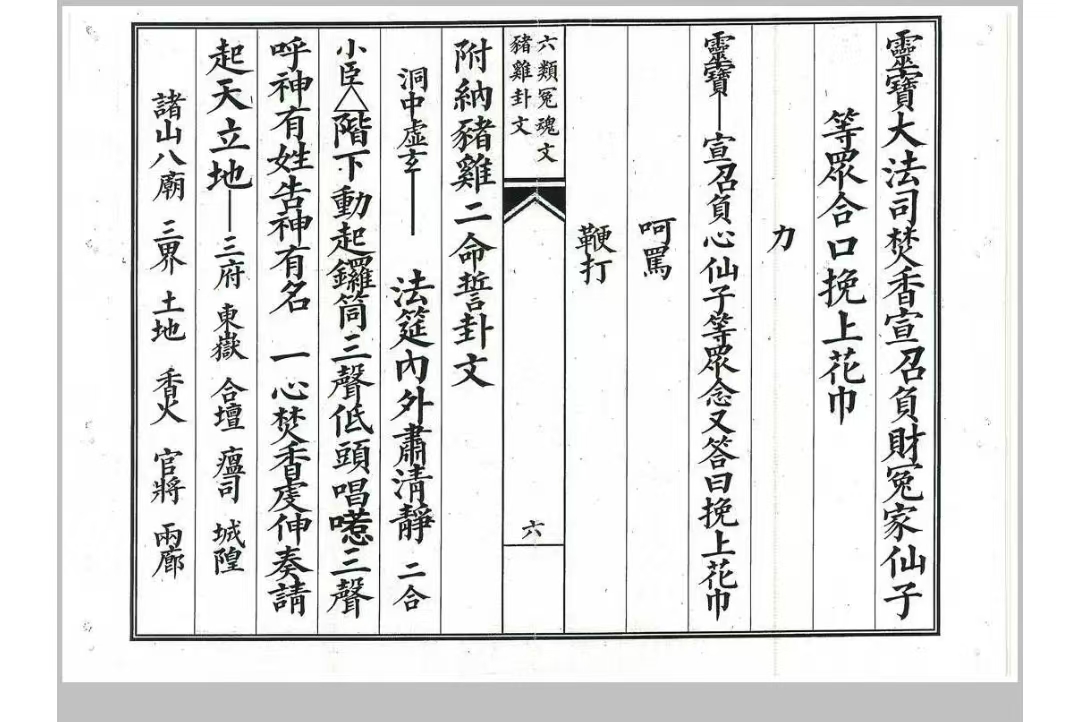 靈寶大法司焚香宣召負財冤家仙子
等眾合口挽上花巾
力
靈寶—宣召負心仙子等眾念又答曰挽上花巾
呵罵
鞭打
六類冤魂文
豬雞卦文
六
附納豬雞二命誓卦文
洞中虛玄— 法筵內外肅清靜 二合
小臣△階下動起鑼筒三聲低頭唱喏三聲
呼神有姓告神有名 一心焚香虔伸奏請
起天立地—三府 東嶽 合壇 瘟司 城隍
諸山八廟 三界 土地 香火 官將 兩廊